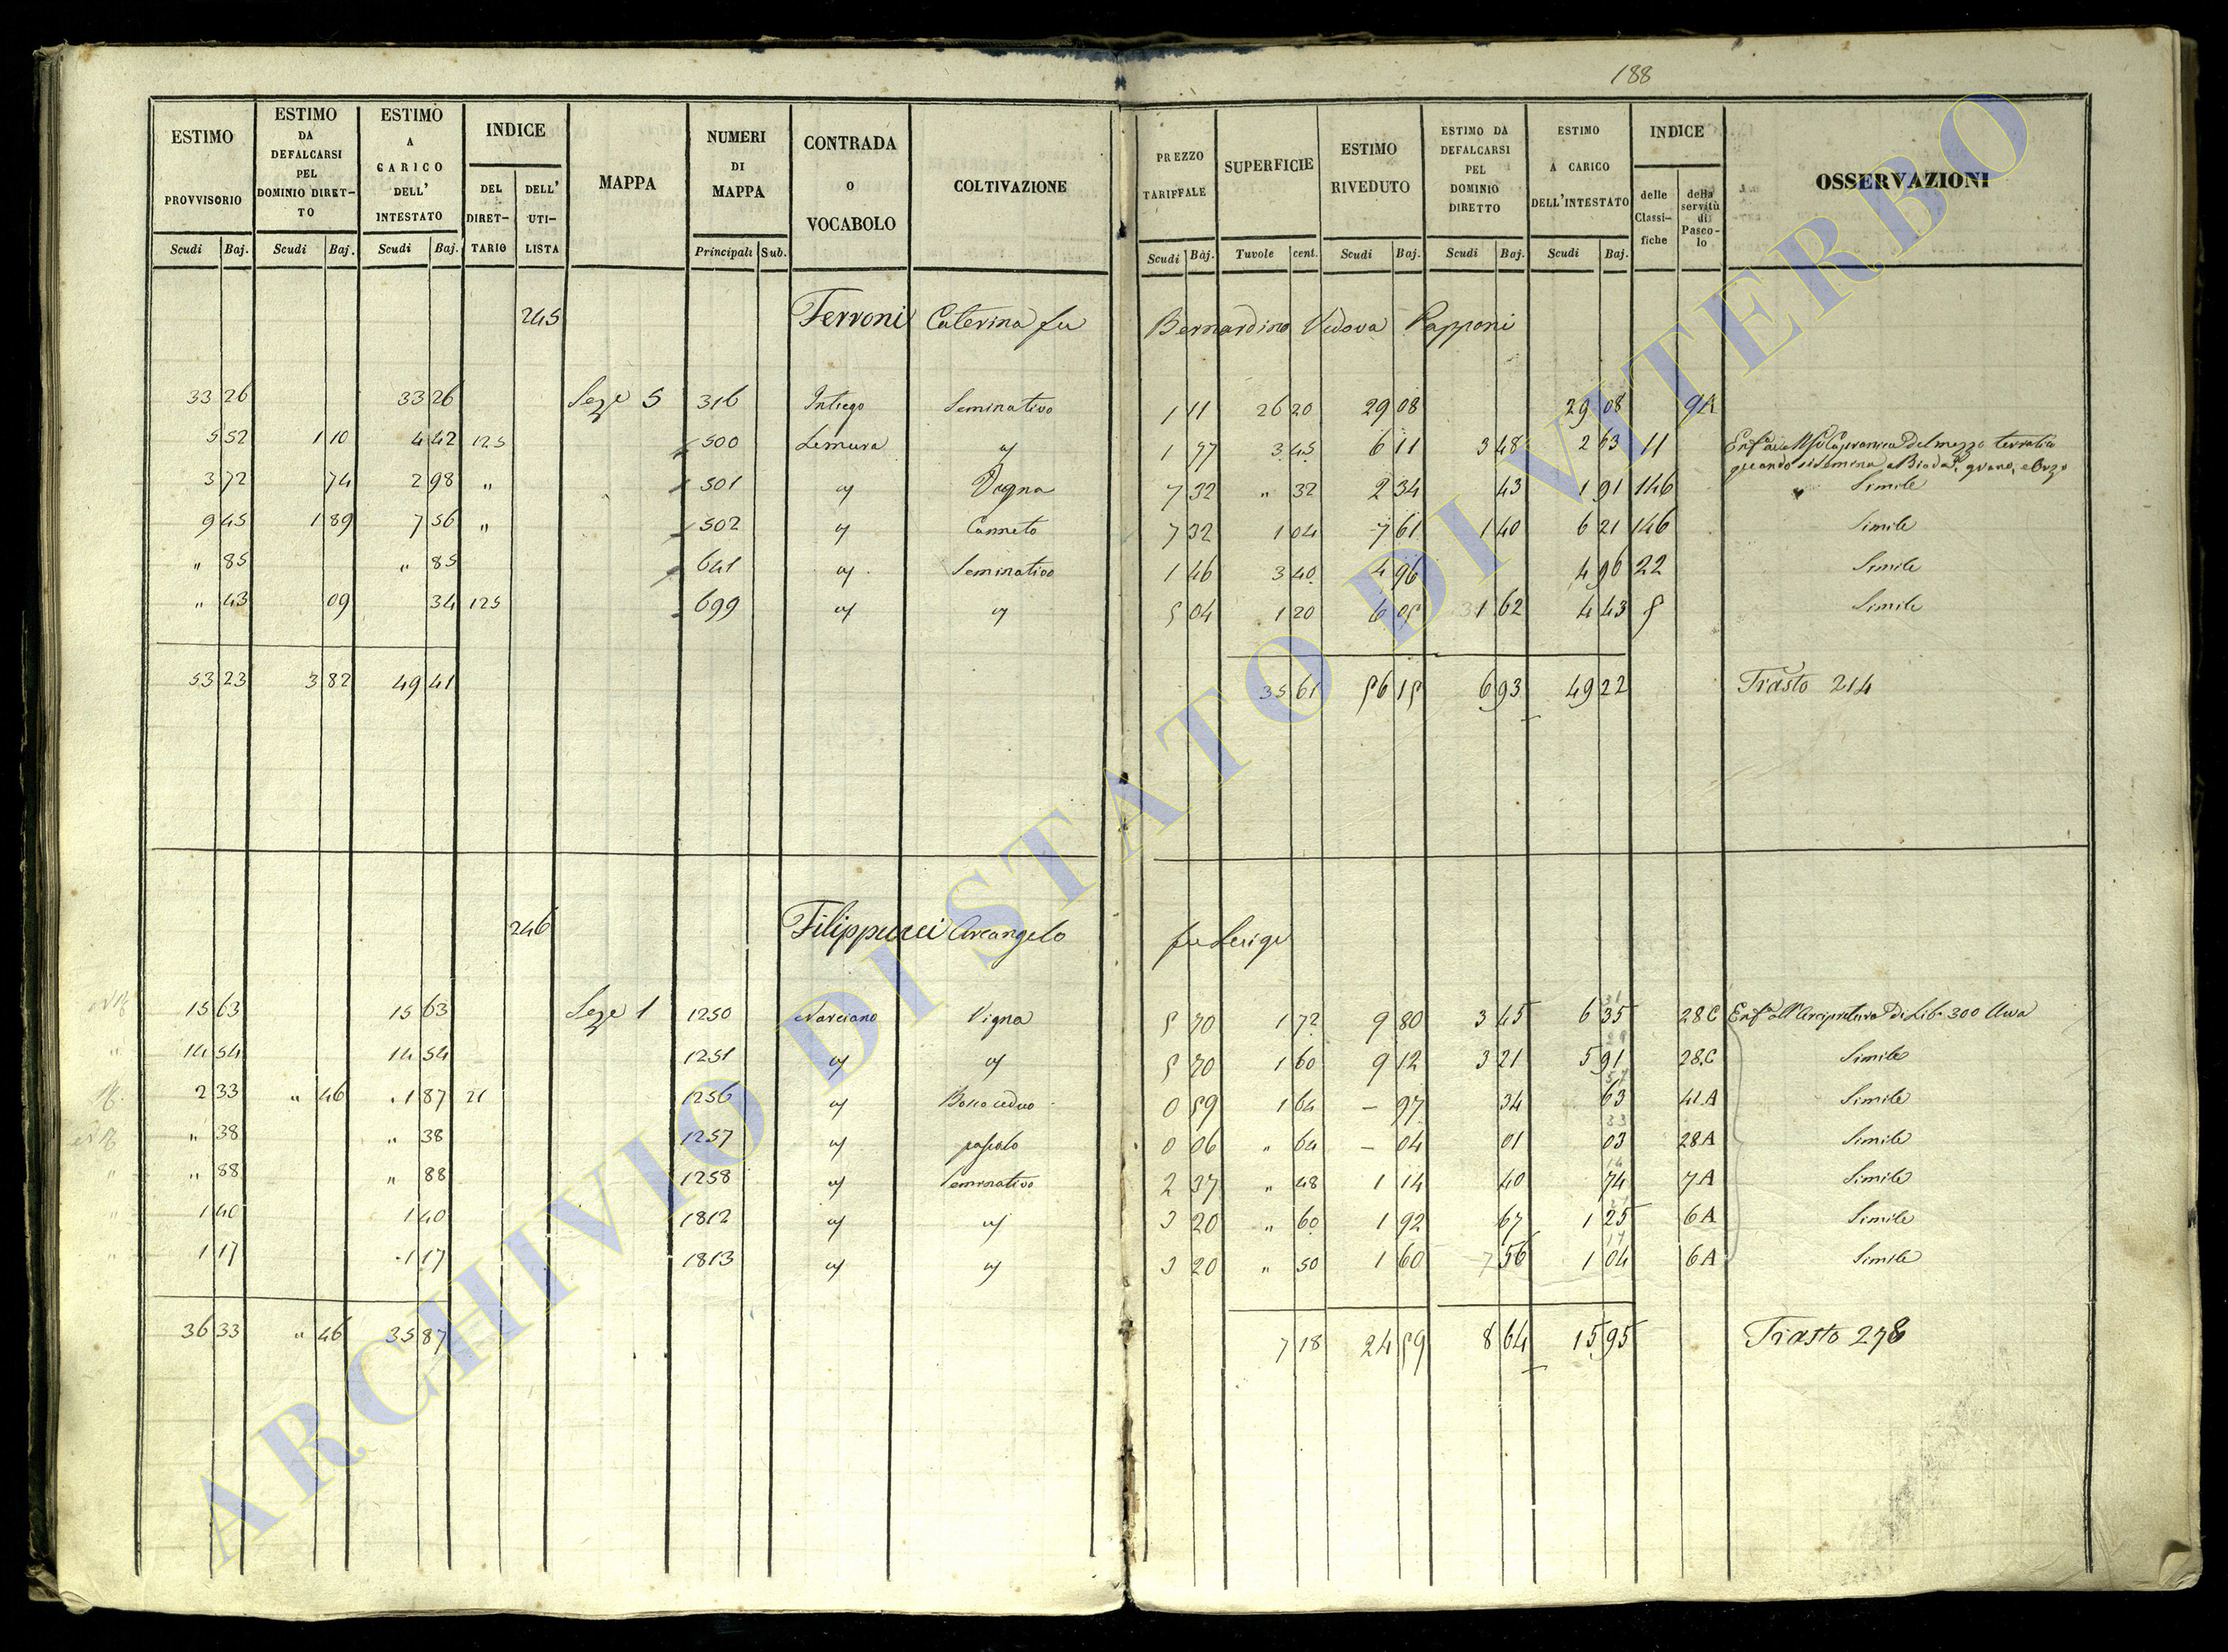 188
ESTIMO PROVVISORIO Scudi Baj.
ESTIMO DA DEFALCARSI PEL DOMINIO DIRETTO Scudi Baj.
ESTIMO A CARICO DELL' INTESTATO Scudi Baj.
INDICE DEL DIRETTARIO DELL' UTILISTA
MAPPA
NUMERI DI MAPPA Principali Sub.
CONTRADA O VOCABOLO
COLTIVAZIONE
PREZZO TARIFFALE Scudi Baj.
SUPERFICIE Tavole cent.
ESTIMO RIVEDUTO Scudi Baj.
ESTIMO DA DEFALCARSI PEL DOMINIO DIRETTO Scudi Baj.
ESTIMO A CARICO DELL'INTESTATO Scudi Baj.
INDICE delle Classifiche della servitù di Pascolo
OSSERVAZIONI
245 Ferroni Caterina fu Bernardino Vedova Papponi
33 26 33 26 Seze 5 316 Seminativo 1 11 26 20 29 08 29 08 9A
5 52 1 10 4 42 125 500 Lemura 1 77 3 45 6 11 3 48 2 63 11
3 72 74 2 98 " 501 7 32 " 32 2 34 43 1 91 146 Simile
9 45 1 89 7 56 " 502 Canneto 7 32 1 04 7 61 1 40 6 21 146 Simile
" 85 " 85 641 Seminativo 1 46 3 40 4 96 4 96 22 Simile
" 43 09 34 125 699 5 04 1 20 6 05 1 62 4 43 5 Simile
53 23 3 82 49 41 35 61 56 15 6 93 49 22 Trasto 214
246 Filippucci Arcangelo fu Luigi
15 63 15 63 Seze 1 1250 Narciano Vigna 5 70 1 72 9 80 3 45 6 35 28C 300 Uva
14 54 14 54 1251 5 70 1 60 9 12 3 21 5 91 28C Simile
2 33 " 46 1 87 21 1256 Bosco ceduo 0 59 1 64 – 97 34 63 41A Simile
" 38 " 38 1257 pascolo 0 06 " 64 – 04 01 03 28A Simile
" 88 " 88 1258 Seminativo 2 37 " 48 1 14 40 74 7A Simile
1 40 1 40 1812 3 20 " 60 1 92 67 1 25 6A Simile
1 17 1 17 1813 3 20 " 50 1 60 56 1 04 6A Simile
36 33 " 46 35 87 7 18 24 59 8 64 15 95 Trasto 278
ARCHIVIO DI STATO DI VITERBO